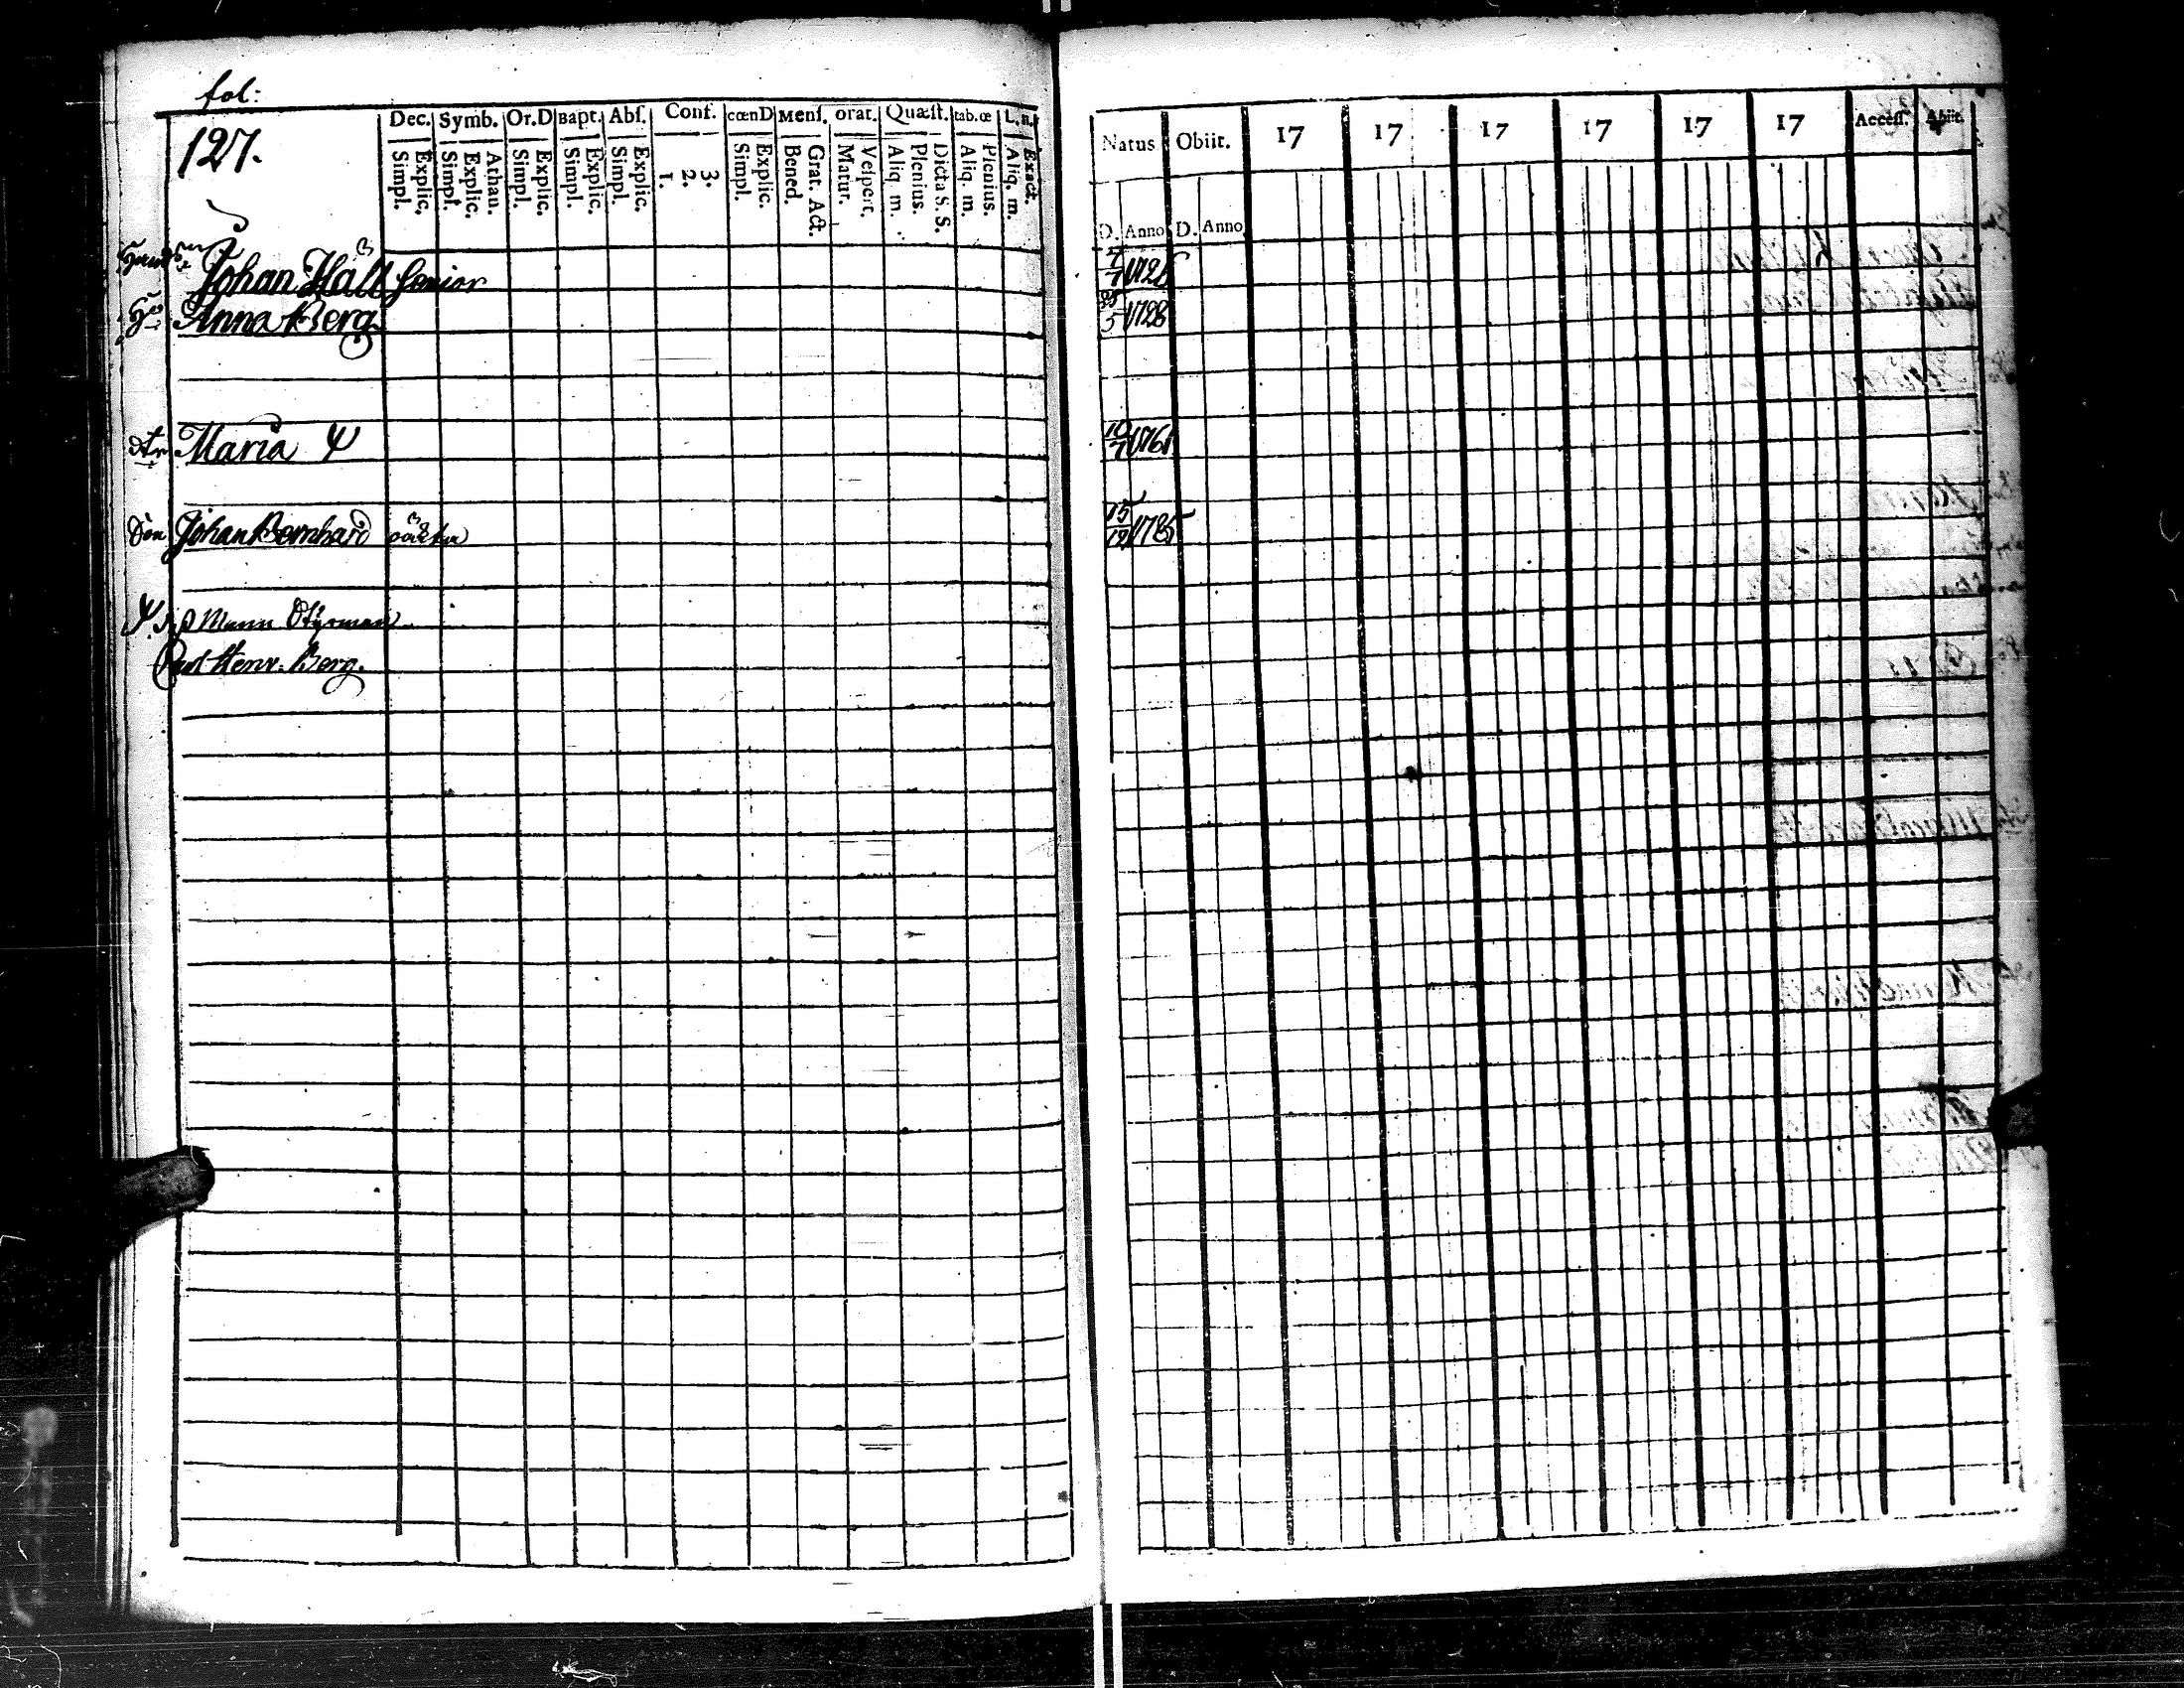 fol:
127.
Dec. Symb. Or.D Bapt. Abſ. Conf. cœnD Menſ. orat. Quæſt. tab.œ L.n.
Simpl. Explic. Simpl. Explic. Athan. Simpl. Explic. Simpl. Explic. Simpl. Explic. 1. 2. 3. Simpl. Explic. Bened. Grat. Act. Matur. Veſpert. Aliq. m. Plenius. Dicta S. S. Aliq. m. Plenius. Aliq. m. Exact.
Johan Håll Senior
Hu Anna Berg
Dtr Maria Ψ
Son Johan Bernhard
Ψ Mann Styrman
Carl Henr. Berg.
Natus Obiit. 17 17 17 17 17 17 Acceſſ. Abiit.
D. Anno D. Anno
7/7
25/5 1728
10/7 1761
15/12 1785